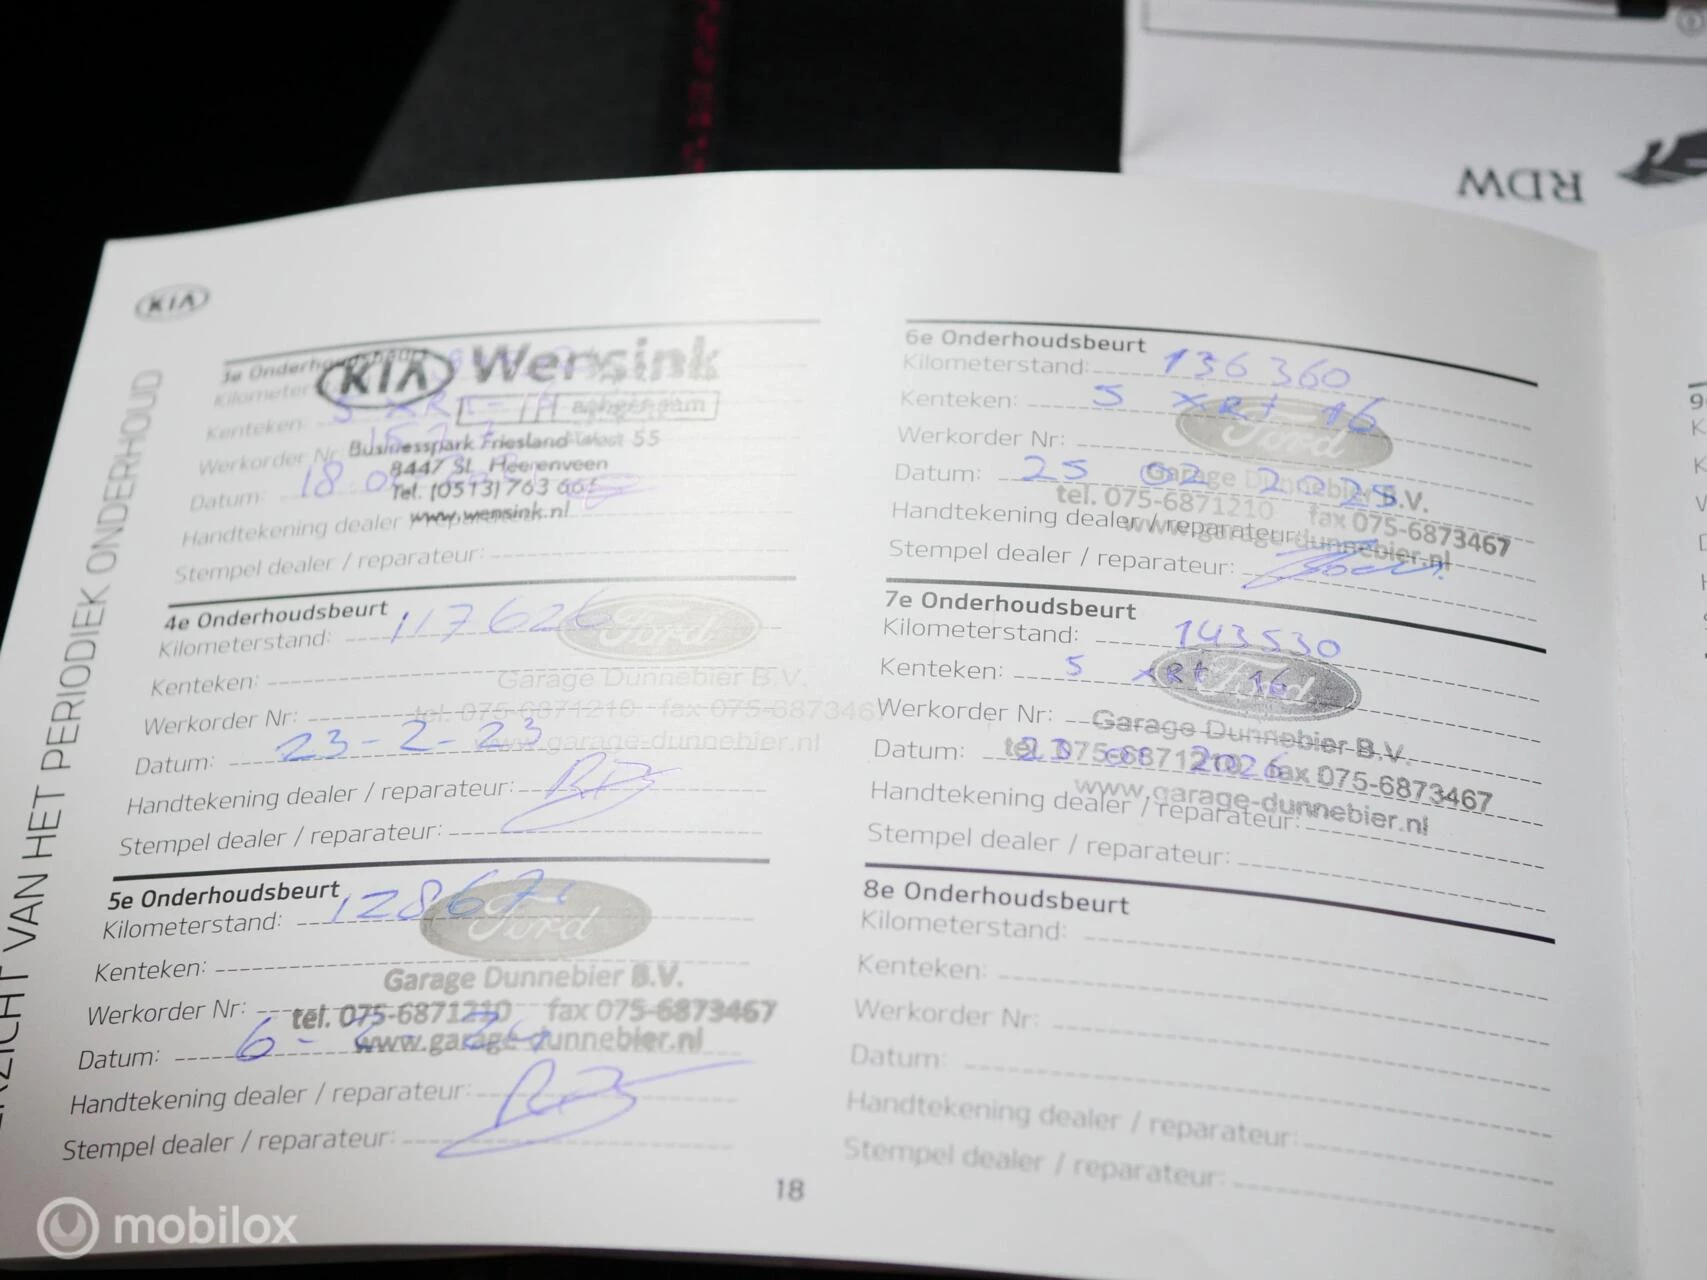 RDW
KIA
OVERZICHT VAN HET PERIODIEK ONDERHOUD
3e Onderhoudsbeurt
Kilometerstand:
Kenteken:
Werkorder Nr:
Datum: 18
Handtekening dealer / reparateur:
Stempel dealer / reparateur:
KIA Wensink
Businesspark Friesland-West 55
8447 SL Heerenveen
Tel. (0513) 763 66
www.wensink.nl
4e Onderhoudsbeurt
Kilometerstand: 117626
Kenteken:
Werkorder Nr:
Datum: 23-2-23
Handtekening dealer / reparateur:
Stempel dealer / reparateur:
Ford
Garage Dunnebier B.V.
tel. 075-6871210 fax 075-6873467
www.garage-dunnebier.nl
5e Onderhoudsbeurt
Kilometerstand: 12867
Kenteken:
Werkorder Nr:
Datum: 6-2-24
Handtekening dealer / reparateur:
Stempel dealer / reparateur:
Ford
Garage Dunnebier B.V.
tel. 075-6871210 fax 075-6873467
www.garage-dunnebier.nl
6e Onderhoudsbeurt
Kilometerstand: 136360
Kenteken: 5 XRT 16
Werkorder Nr:
Datum: 25 02 2025
Handtekening dealer / reparateur:
Stempel dealer / reparateur:
Ford
Garage Dunnebier B.V.
tel. 075-6871210 fax 075-6873467
www.garage-dunnebier.nl
7e Onderhoudsbeurt
Kilometerstand: 143530
Kenteken: 5 XRT 16
Werkorder Nr:
Datum: 2026
Handtekening dealer / reparateur:
Stempel dealer / reparateur:
Ford
Garage Dunnebier B.V.
tel. 075-6871210 fax 075-6873467
www.garage-dunnebier.nl
8e Onderhoudsbeurt
Kilometerstand:
Kenteken:
Werkorder Nr:
Datum:
Handtekening dealer / reparateur:
Stempel dealer / reparateur:
18
mobilox